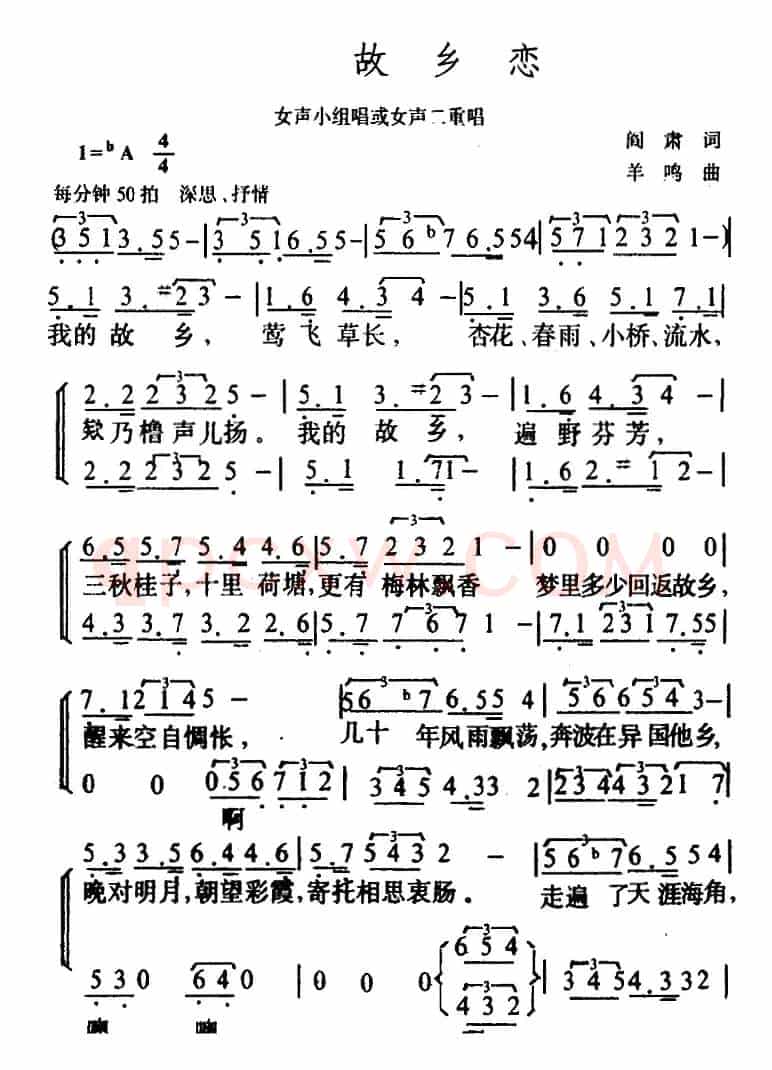 故乡恋
女声小组唱或女声二重唱
1=ᵇA 4/4
阎肃词
羊鸣曲
每分钟50拍 深思、抒情
(3 5 1 3.5 5 - | 3 5 1 6.5 5 - | 5 6 ᵇ7 6.5 5 4 | 5 7 1 2 3 2 1 - )
5.1 3.=2 3 - | 1.6 4.3 4 - | 5.1 3.6 5.5 7.1 |
我的故乡，莺飞草长，杏花、春雨、小桥、流水，
2.2 2 3 2 5 - | 5.1 3.=2 3 - | 1.6 4.3 4 - |
欸乃橹声儿扬。我的故乡，遍野芬芳，
2.2 2 3 2 5 - | 5.1 1.7 1 - | 1.6 2.=1 2 - |
6.5 5.7 5.4 4.6 | 5.7 2 3 2 1 - | 0 0 0 0
三秋桂子，十里荷塘，更有梅林飘香 梦里多少回返故乡，
4.3 3.7 3.2 2.6 | 5.7 7 6 7 1 - | 7.1 2 3 1 7.5 5 |
7.1 2 1 4 5 - | 5 6 ᵇ7 6.5 5 4 | 5 6 6 5 5 4 3 - |
醒来空自惆怅，几十年风雨飘荡，奔波在异国他乡，
0 0 0.5 6 7 1 2 | 3 4 5 4.3 3 2 | 2 3 4 4 3 2 1 7 |
啊
5.3 3.5 6.4 4.6 | 5.7 5 4 3 2 - | 5 6 ᵇ7 6.5 5 4 |
晚对明月，朝望彩霞，寄托相思衷肠。走遍了天涯海角，
5 3 0 6 4 0 | 0 0 0 { 6 5 4 | 3 4 5 4.3 3 2 |
4 3 2 }